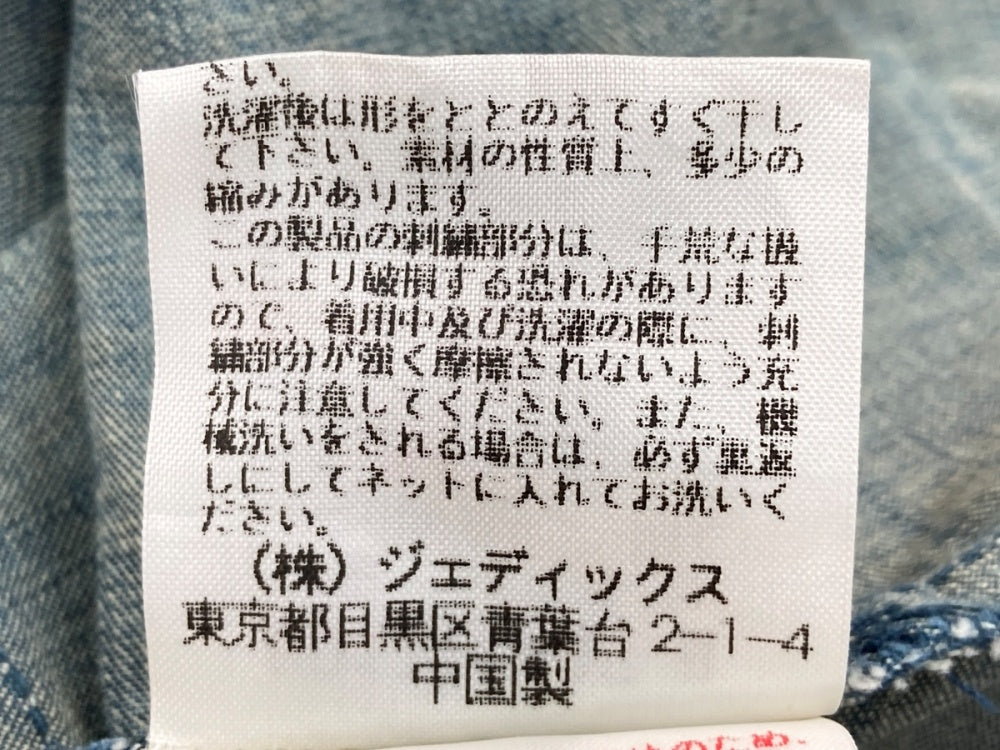 さい。
洗濯後は形をととのえてすぐ干し
て下さい。素材の性質上、多少の
縮みがあります。
この製品の刺繍部分は、手荒な扱
いにより破損する恐れがあります
ので、着用中及び洗濯の際に、刺
繍部分が強く摩擦されないよう充
分に注意してください。また、機
械洗いをされる場合は、必ず裏返
しにしてネットに入れてお洗いく
ださい。
(株)ジェディックス
東京都目黒区青葉台2-1-4
中国製
のため、